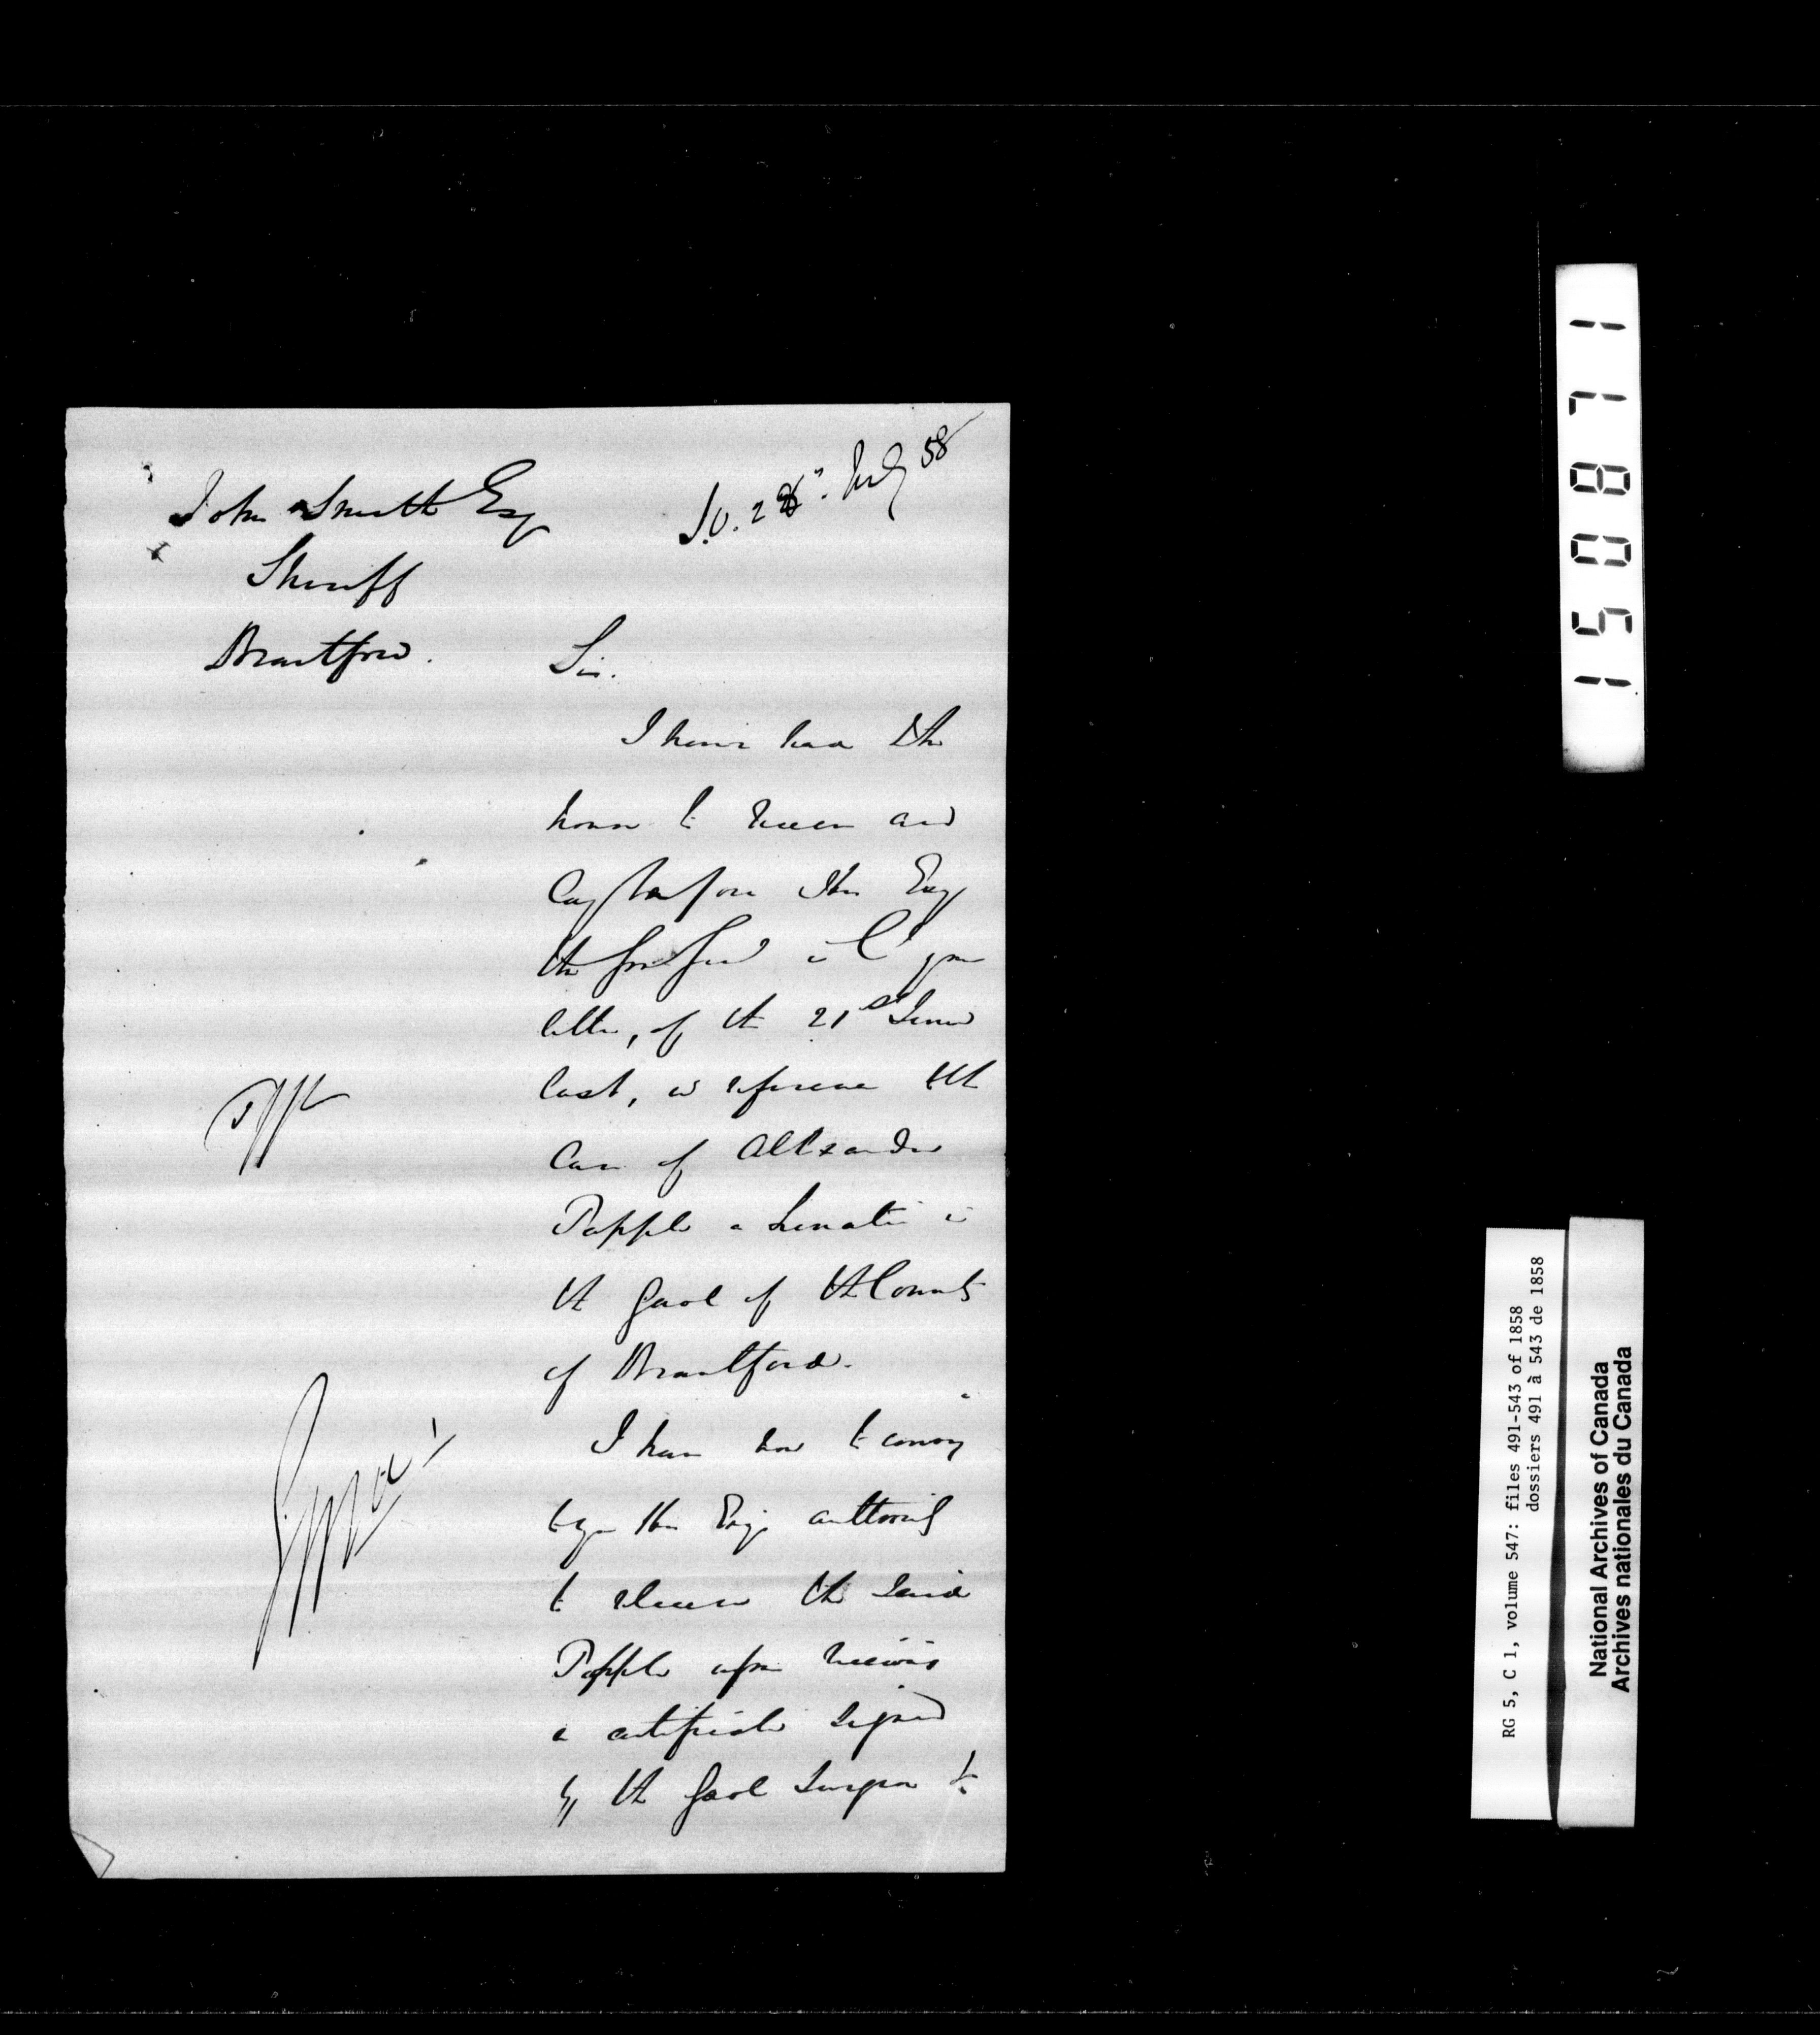 John Smith Esq
Sheriff
Brantford.
S.O. 28". July 58
Sir.
I have had the
honor to receive and
lay before His Exy
the Gov. Gen.l your
letter, of the 21st June
last, in reference to the
Case of Alexander
Popple a Lunatic in
the Gaol of the County
of Brantford.
I have now to convey
to you His Exy's authority
to release the said
Popple upon receiving
a certificate signed
by the Gaol Surgeon to
150871
RG 5, C 1, volume 547: files 491-543 of 1858
dossiers 491 à 543 de 1858
National Archives of Canada
Archives nationales du Canada